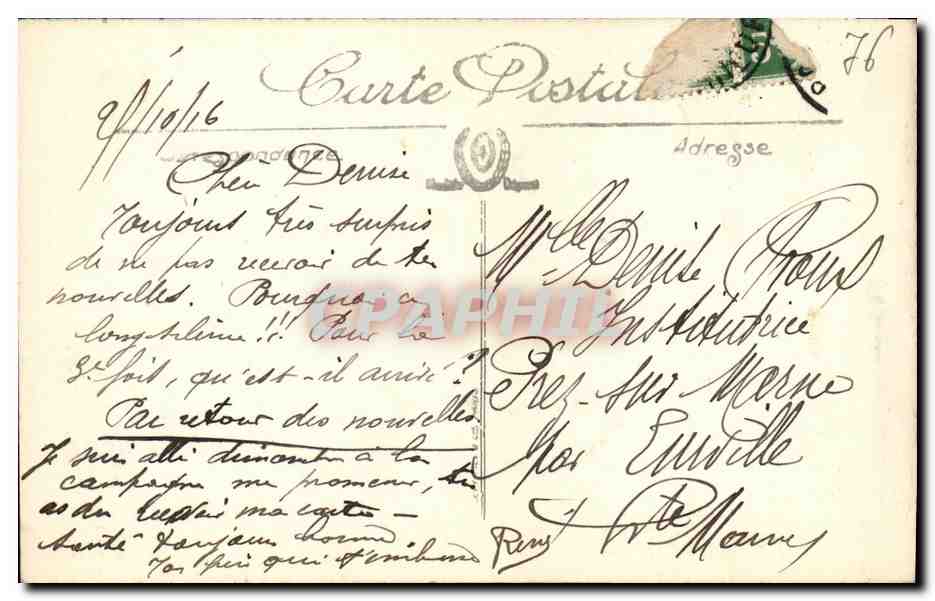 Carte Postale
76
9/10/16
Correspondance
Adresse
Chère Denise
Toujours très surpris
de ne pas recevoir de tes
nouvelles. Pourquoi ce
long silence!!! Pour la
3e fois, qu'est-il arrivé?
Par retour des nouvelles.
Je suis allé dimanche à la
campagne me promener, tu
as du recevoir ma carte —
Santé toujours bonne
qui t'embrasse
René
Mlle Denise Proux
Institutrice
Prez-sur-Marne
par Eurville
Hte Marne
CPAPHIL